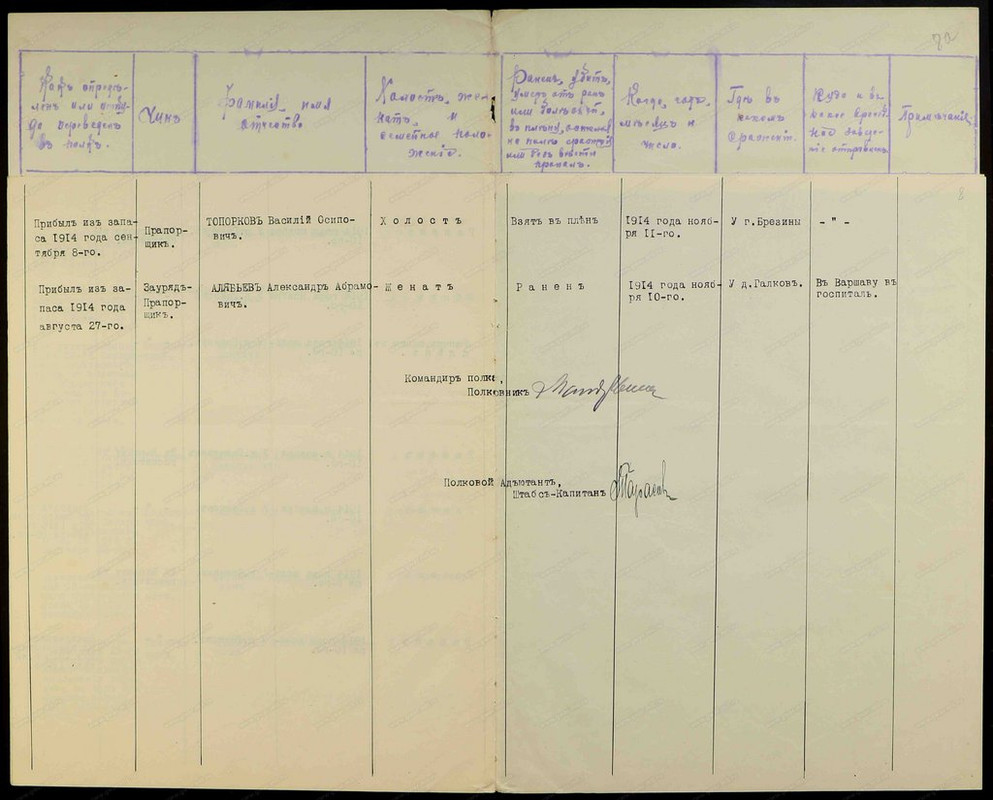 Какъ опредѣ-
ленъ или отку-
да переведенъ
въ полкъ.
Чинъ
Фамилія имя
отчество
Холостъ, же-
натъ, и
семейное поло-
женіе.
Раненъ, убитъ,
умеръ отъ ранъ
или болѣзней,
въ плѣну, остался
на полѣ сраженій
или безъ вѣсти
пропалъ.
Когда, годъ,
мѣсяцъ и
число.
Гдѣ въ
какомъ
сраженіи.
Куда и въ
какое
отправленъ
Примѣчаніе
8
Прибылъ изъ запа-
са 1914 года сен-
тября 8-го.
Прапор-
щикъ.
ТОПОРКОВЪ Василій Осипо-
вичъ.
Холостъ
Взятъ въ плѣнъ
1914 года нояб-
ря 11-го.
У г.Брезины
- " -
Прибылъ изъ за-
паса 1914 года
августа 27-го.
Заурядъ-
Прапор-
щикъ.
АЛЯБЬЕВЪ Александръ Абрамо-
вичъ.
Женатъ
Раненъ
1914 года нояб-
ря 10-го.
У д.Галковъ.
Въ Варшаву въ
госпиталь.
Командиръ полка,
Полковникъ
Полковой Адъютантъ,
Штабсъ-Капитанъ Тарасов